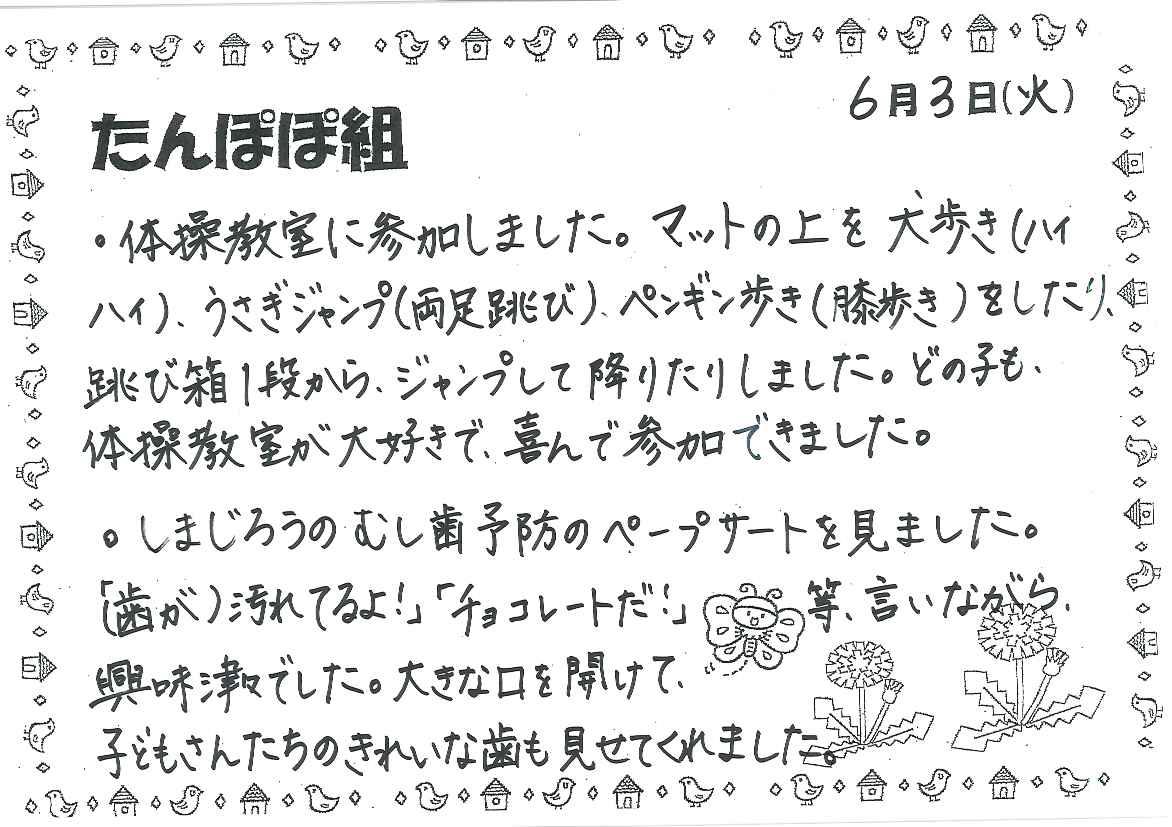 6月3日(火)
たんぽぽ組
。体操教室に参加しました。マットの上を犬歩き(ハイ
ハイ)、うさぎジャンプ(両足跳び)、ペンギン歩き(膝歩き)をしたり、
跳び箱1段から、ジャンプして降りたりしました。どの子も、
体操教室が大好きで、喜んで参加できました。
。しまじろうのむし歯予防のペープサートを見ました。
「(歯が)汚れてるよ!」「チョコレートだ!」等、言いながら、
興味津々でした。大きな口を開けて、
子どもさんたちのきれいな歯も見せてくれました。